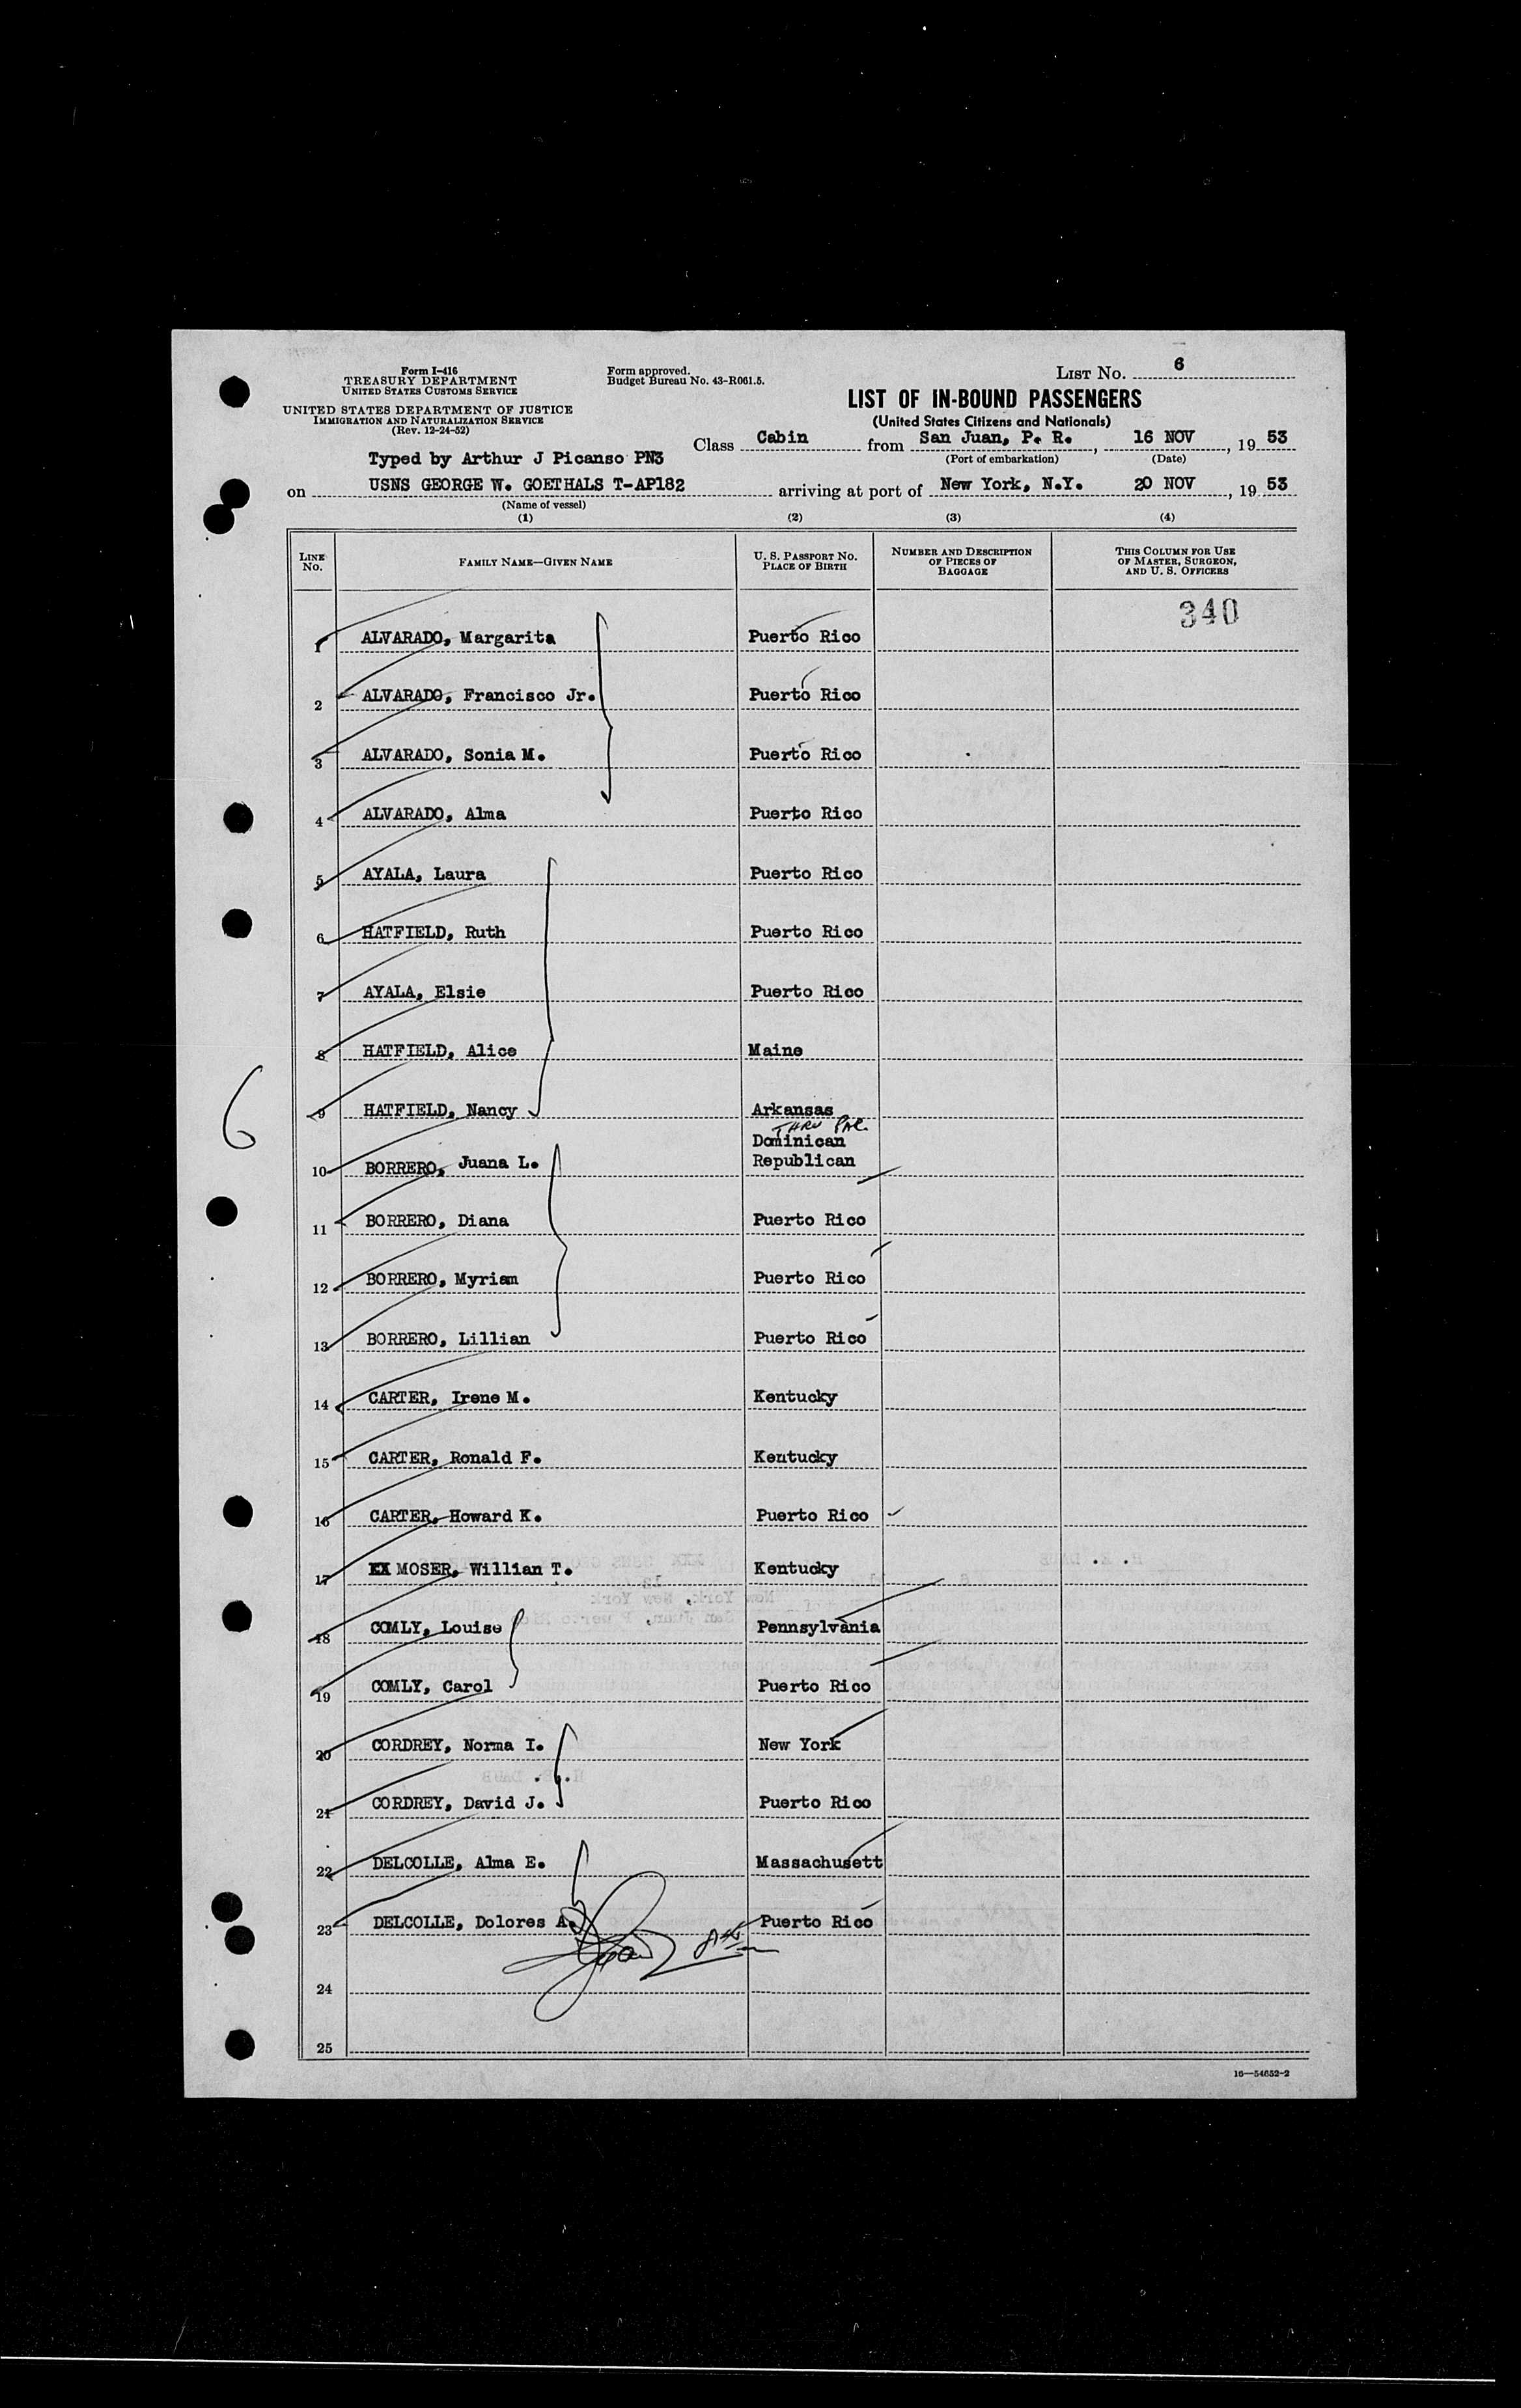 Form I-416
TREASURY DEPARTMENT
UNITED STATES CUSTOMS SERVICE
UNITED STATES DEPARTMENT OF JUSTICE
IMMIGRATION AND NATURALIZATION SERVICE
(Rev. 12-24-52)
Form approved.
Budget Bureau No. 43-R061.5.
LIST No. 6
LIST OF IN-BOUND PASSENGERS
(United States Citizens and Nationals)
Class Cabin from San Juan, P. R. , 16 NOV , 19 53
(Port of embarkation) (Date)
Typed by Arthur J Picanso PN3
on USNS GEORGE W. GOETHALS T-AP182 arriving at port of New York, N.Y. 20 NOV , 19 53
(Name of vessel)
(1) (2) (3) (4)
LINE No. FAMILY NAME—GIVEN NAME U. S. PASSPORT NO. PLACE OF BIRTH NUMBER AND DESCRIPTION OF PIECES OF BAGGAGE THIS COLUMN FOR USE OF MASTER, SURGEON, AND U. S. OFFICERS
340
1 ALVARADO, Margarita Puerto Rico
2 ALVARADO, Francisco Jr. Puerto Rico
3 ALVARADO, Sonia M. Puerto Rico
4 ALVARADO, Alma Puerto Rico
5 AYALA, Laura Puerto Rico
6 HATFIELD, Ruth Puerto Rico
7 AYALA, Elsie Puerto Rico
8 HATFIELD, Alice Maine
9 HATFIELD, Nancy Arkansas
6
THRU
10 BORRERO, Juana L. Dominican Republican
11 BORRERO, Diana Puerto Rico
12 BORRERO, Myriam Puerto Rico
13 BORRERO, Lillian Puerto Rico
14 CARTER, Irene M. Kentucky
15 CARTER, Ronald F. Kentucky
16 CARTER, Howard K. Puerto Rico
17 MOSER, Willian T. Kentucky
18 COMLY, Louise Pennsylvania
19 COMLY, Carol Puerto Rico
20 CORDREY, Norma I. New York
21 CORDREY, David J. Puerto Rico
22 DELCOLLE, Alma E. Massachusett
23 DELCOLLE, Dolores A. Puerto Rico
24
25
16—54652-2